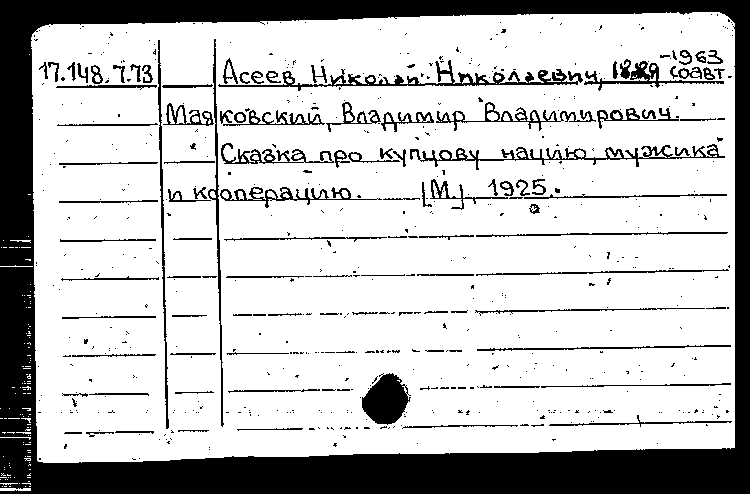 17.148.7.73 Асеев, Николай Николаевич, 1889-1963 соавт.
Маяковский, Владимир Владимирович.
Сказка про купцову нацию, мужика
и кооперацию. [М.], 1925.